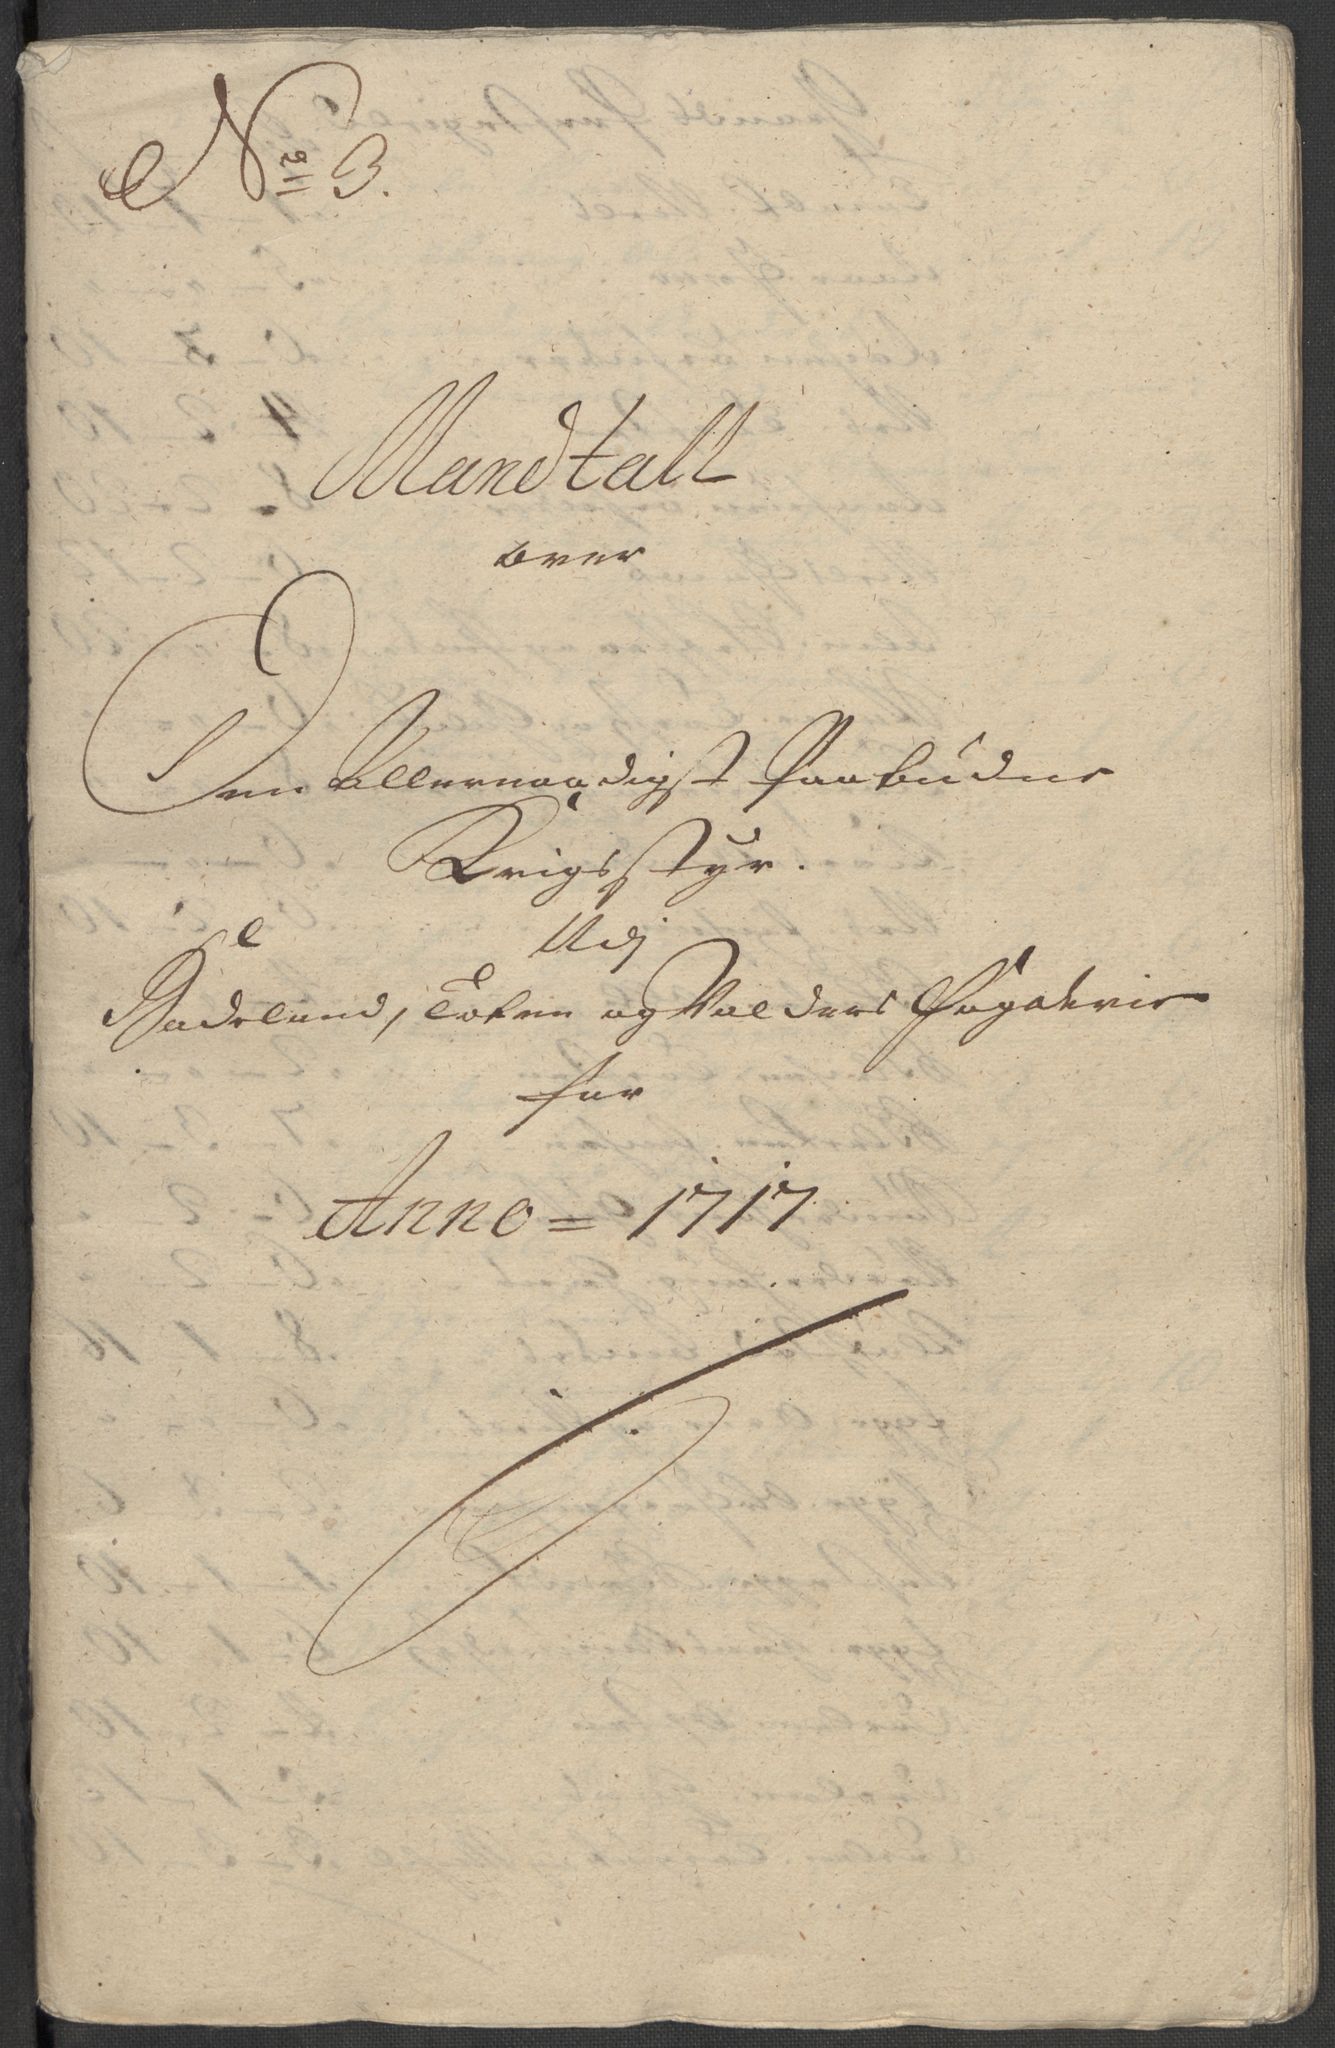 No 3.
Mandtall
over
Den Allernaadigst Paabudne
Krigsstyr.
Udj
Hadeland, Toten og Valders Fogderie
for
Anno = 1717